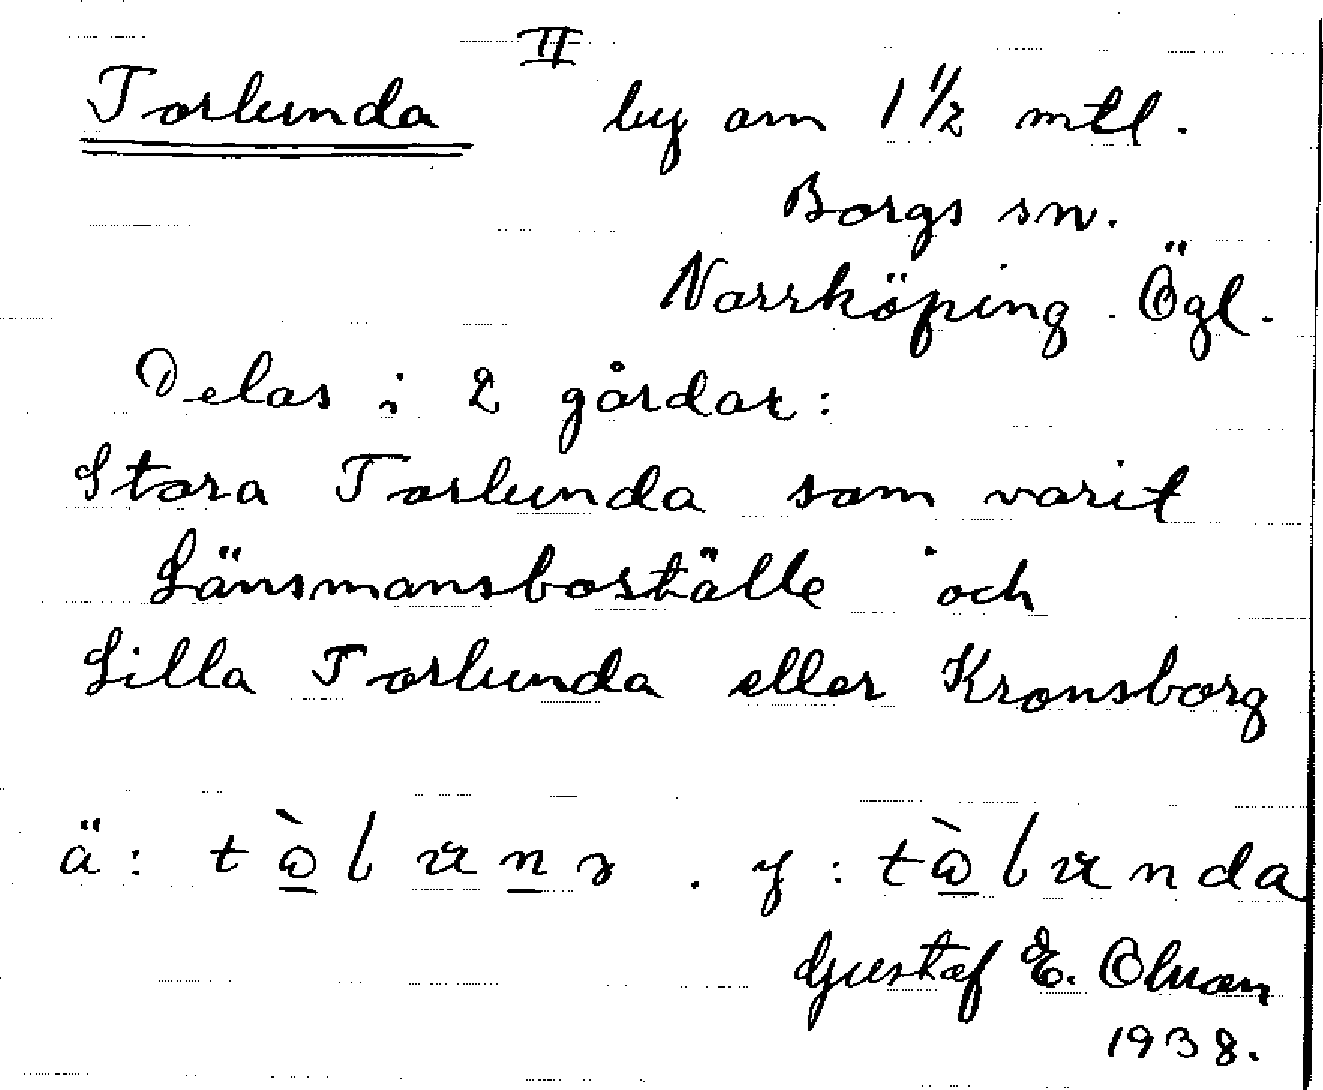 II
Torlunda by om 1 1/2 mtl.
Borgs sn.
Norrköping. Ögl.
Delas i 2 gårdar:
Stora Torlunda som varit
Länsmansboställe och
Lilla Torlunda eller Kronsborg
ä: . y:
Gustaf E. Olsson
1938.